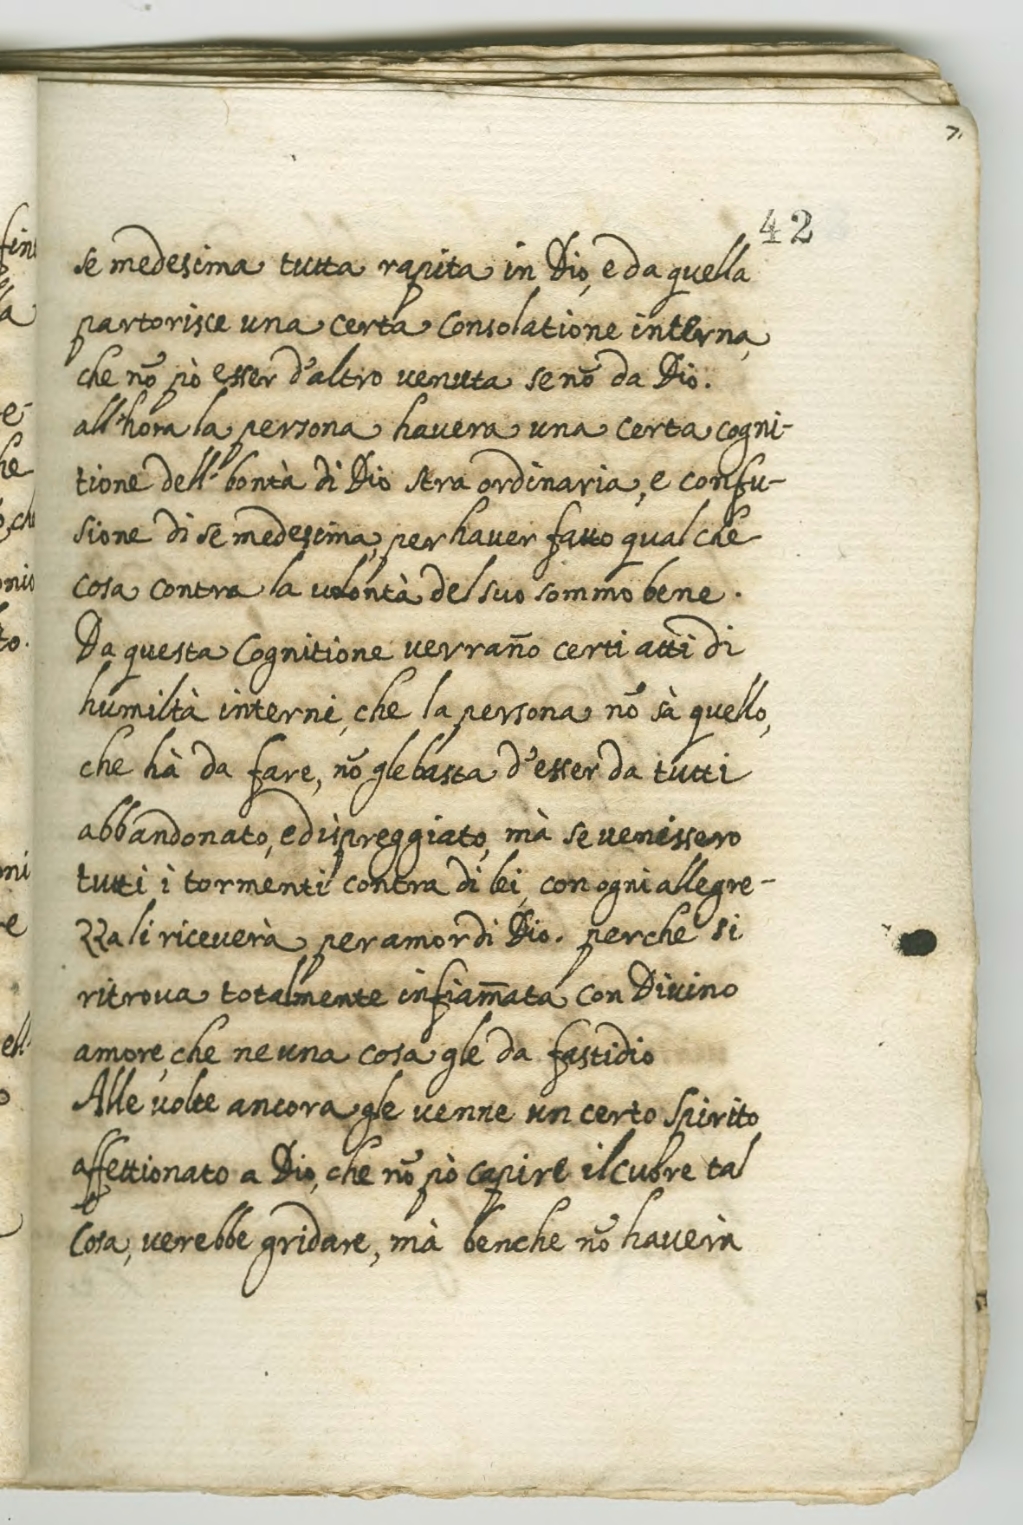 7.
42
se medesima tutta rapita in Dio, e da quella
partorisce una certa Consolatione interna,
che nõ pò esser d'altro venuta se nõ da Dio.
all'hora la persona havera una certa cogni-
tione dell' bontà di Dio stra ordinaria, e confu-
sione di se medesima, per haver fatto qual che
cosa contra la volontà del suo sommo bene.
Da questa Cognitione verrano͂ certi atti di
humiltà interni, che la persona nõ sà quello,
che hà da fare, nõ gle basta d'esser da tutti
abbandonato, e dispreggiato, mà se venissero
tutti i tormenti contra di lei, con ogni allegre-
zza li riceverà per amor di Dio. perche si
ritrova totalmente infiam̃ata con Divino
amore, che ne una cosa gle da fastidio
Alle volte ancora gle venne un certo Spirito
affettionato a Dio, che nõ pò capire il Cuore tal
Cosa, verebbe gridare, mà benche nõ haverà